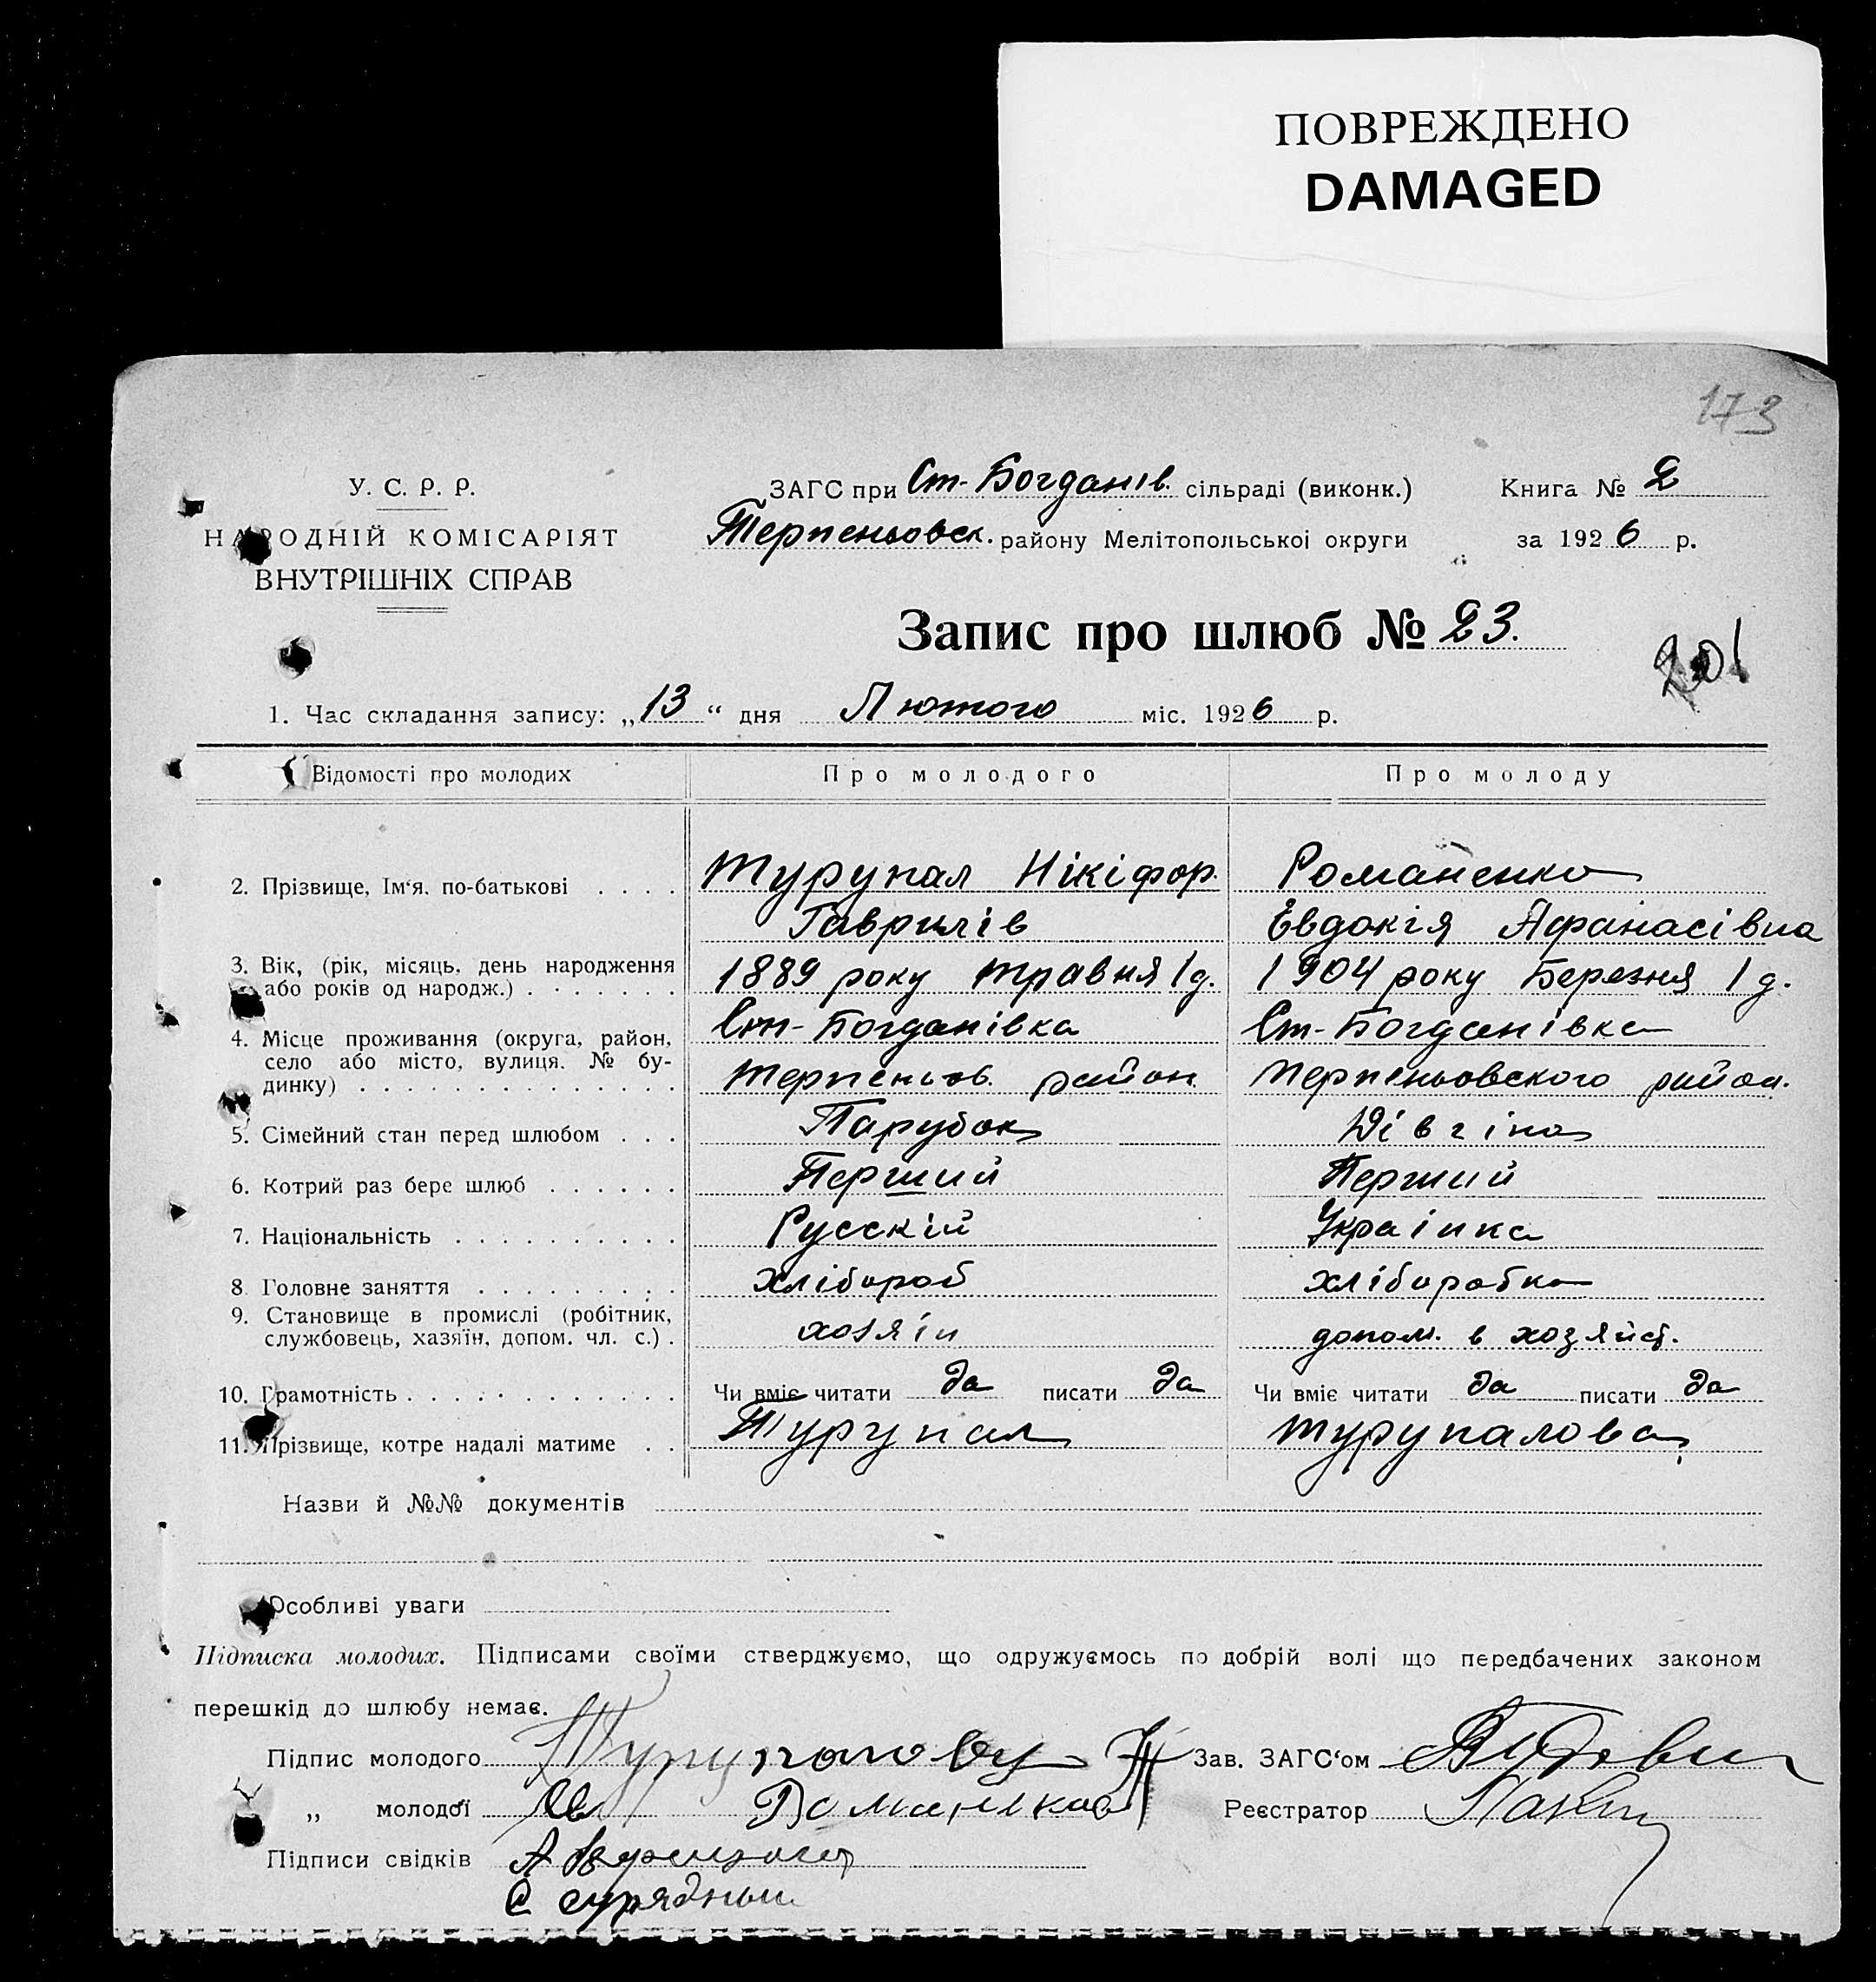 ПОВРЕЖДЕНО
DAMAGED
173
У. С. Р. Р.
НАРОДНІЙ КОМІСАРІЯТ
ВНУТРІШНІХ СПРАВ
ЗАГС при Ст-Богданів. сільраді (виконк.) Книга № 2
Терпеньовск. району Мелітопольської округи за 1926 р.
Запис про шлюб № 23.
201
1. Час складання запису: „13“ дня Лютого міс. 1926 р.
Відомості про молодих Про молодого Про молоду
2. Прізвище, Ім‘я, по-батькові . . . . Турупал Нікіфор Романенко
Гаврилів Евдокія Афанасівна
3. Вік, (рік, місяць, день народження 1889 року травня 1 д. 1904 року Березня 1 д.
або років од народж.) . . . . . . .
4. Місце проживання (округа, район, Ст-Богданівка Ст-Богданівка
село або місто, вулиця, № бу-
динку) . . . . . . . . . . . . . . Терпеньов. район. Терпеньовского район.
5. Сімейний стан перед шлюбом . . . Парубок Дівчіна
6. Котрий раз бере шлюб . . . . . . Перший Перший
7. Національність . . . . . . . . . . Русскій Украінка
8. Головне заняття . . . . . . . . . хлібороб хлібо­робка
9. Становище в промислі (робітник, хозяін допом. в хозяйст.
службовець, хазяїн, допом. чл. с.) .
10. Грамотність . . . . . . . . . . . . Чи вміє читати да писати да Чи вміє читати да писати да
11. Прізвище, котре надалі матиме . . Турупал Турупалова
Назви й №№ документів
Особливі уваги
Підписка молодих. Підписами своїми стверджуємо, що одружуємось по добрій волі що передбачених законом
перешкід до шлюбу немає.
Підпис молодого Зав. ЗАГС‘ом
„ молодої Реєстратор
Підписи свідків